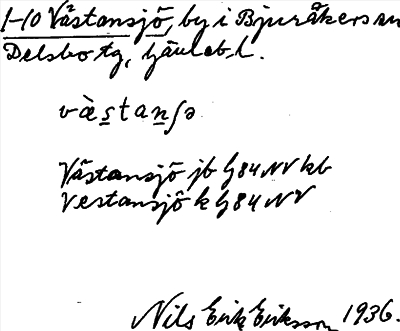 1-10 Västansjö, by i Bjuråkers sn
Delsbo tg, Gävleb. l.
vàs̲tan̲ʃə
Västansjö jb G84 NV kb
Vestansjö k G84 NV
Nils Erik Eriksson 1936.